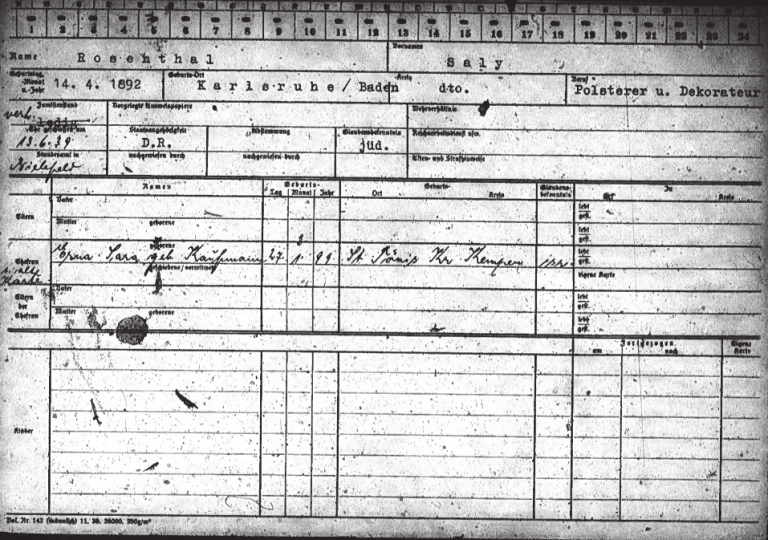 1 2 3 4 5 6 7 8 9 10 11 12 13 14 15 16 17 18 19 20 21 22 23 24
Name Rosenthal Vornamen Saly
Geburtstag, -Monat u. -Jahr 14. 4. 1892 Geburts-Ort Karlsruhe/Baden Kreis dto. Beruf Polsterer u. Dekorateur
Familienstand Vorgelegte Ausweispapiere Wehrverhältnis
verh. ledig
Ehe geschlossen am Staatsangehörigkeit Abstammung Glaubensbekenntnis Reichsarbeitsdienst usw.
13.6.39 D.R. jüd.
Standesamt in nachgewiesen durch nachgewiesen durch Akten- und Strafhinweise
Bielefeld
Namen Geburts- Geburts- Glaubens-bekenntnis In
Tag Monat Jahr Ort Kreis Ort Kreis
Eltern Vater lebt gest.
Mutter geborene lebt gest.
Ehefrau geborene lebt gest.
Erna Sara geb Kaufmann 27. 1. 99 St Tönis Kr Kempen isr.
s. alte Karte geschiedene/verwitwete Eigene Karte
Eltern der Ehefrau Vater lebt gest.
Mutter geborene lebt gest.
Fortgezogen Eigene Karte
am nach
Kinder
Bel. Nr. 142 (männlich) 11. 38. 25000. 250g/m²